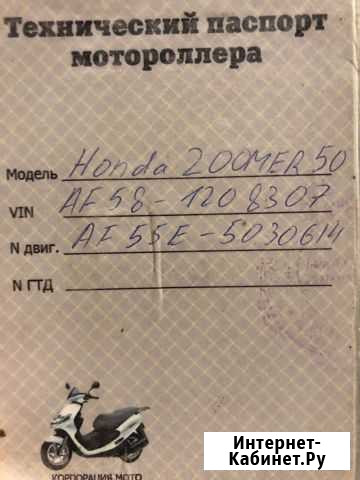 Технический паспорт
мотороллера
Модель Honda ZOOMER 50
VIN AF58-1208307
N двиг. AF55E-5030614
N ГТД
КОРПОРАЦИЯ МОТО
Интернет-
Кабинет.Ру